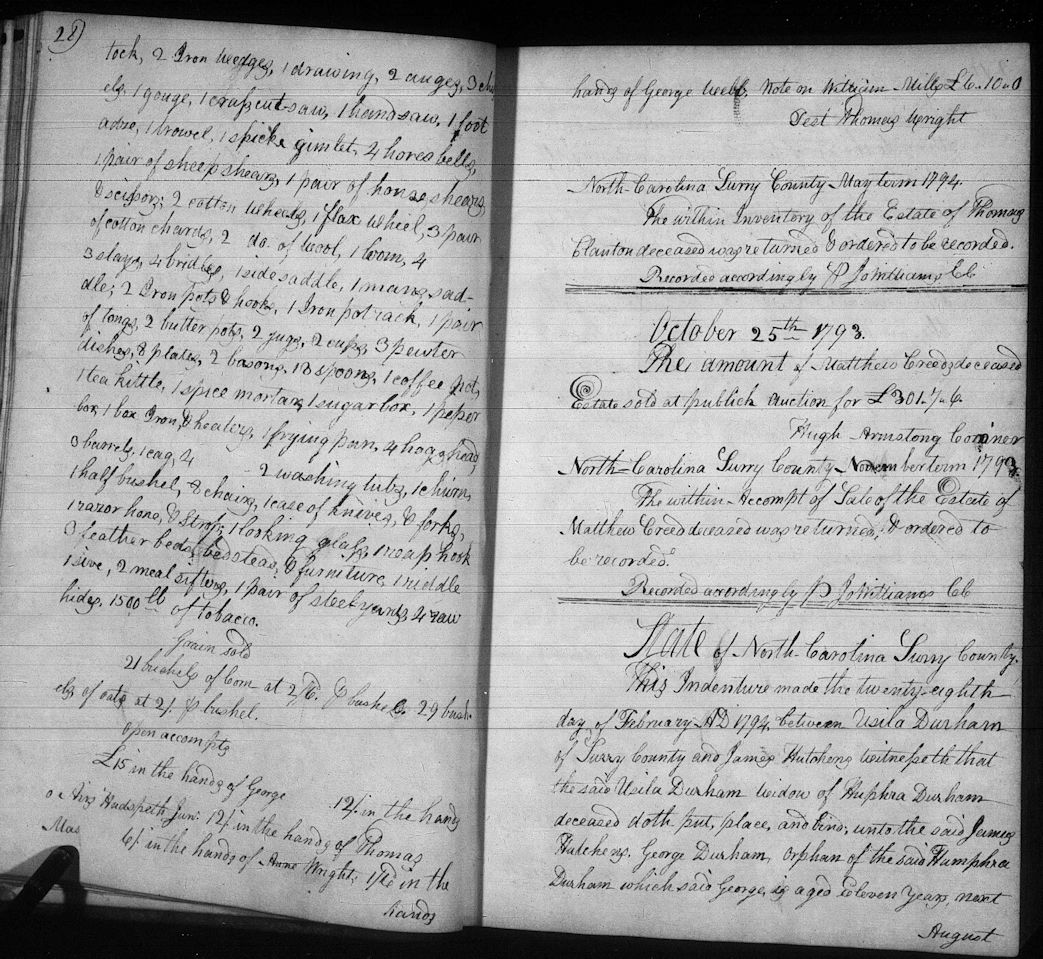 22
tock, 2 Iron wedges, 1 drawing, 2 auges, 3 chis
els, 1 gouge, 1 crosscut saw, 1 handsaw, 1 foot
adze, 1 trowel, 1 spicke gimlet, 4 hores bells,
1 pair of sheep shears, 1 pair of horse shears,
& scissors; 2 cotton wheels, 1 flax wheel, 3 pair
of cotton chards, 2 do. of wool, 1 loom, 4
3 slays, 4 bridles, 1 side saddle, 1 mans sad-
dle; 2 Iron pots & hooks, 1 Iron potrack, 1 pair
of tongs, 2 butter pots, 2 jugs, 2 cups, 3 pewter
dishes, 8 plates, 2 basons, 18 spoons, 1 coffee pot,
1 tea kittle, 1 spice mortar, 1 sugar box, 1 peper
box, 1 box Iron, & heaters, 1 frying pan, 4 hogsheads,
3 barrels, 1 cag, 4 2 washing tubs, 1 churn,
1 half bushel, 8 chairs, 1 case of knieves, & forks,
1 razor hone, & strop; 1 looking glass, 1 reap hook
3 feather beds, bedsteads, & furniture, 1 riddle
1 sive, 2 meal sifters, 1 pair of steelyards, 4 raw
hides, 1500 lb of tobacco.
Grain sold
21 bushels of Corn at 2/6. ⅌ bushel. 29 bush
els of oats at 2/. ⅌ bushel.
open accompts
£15 in the hands of George 12/. in the hands
o Airs Hudspeth Jun: 12/. in the hands of Thomas
Mas 6/. in the hands of Wright; in the
hands
hands of George Webb, Note on William Mills £6..10..0
Test Thomas Wright
North-Carolina Surry County May term 1794.
The within Inventory of the Estate of Thomas
Clanton deceased was returned & ordered to be recorded.
Recorded accordingly ⅌ Jo Williams CC
October 25th 1793.
The amount of Matthew Creeds deceased
Estate sold at publick auction for £301..7..6
Hugh Armstong Coroner
North-Carolina Surry County November term 1793.
The within Accompt of Sale of the Estate of
Matthew Creed deceased was returned, & ordered to
be recorded.
Recorded accordingly ⅌ Jo Williams CC
State of North-Carolina Surry County.
This Indenture made the twenty-eighth
day of February AD 1794. between Usila Durham
of Surry County and James Hutchens witnesseth that
the said Usila Durham widow of Huphra Durham
deceased doth put, place, and bind, unto the said James
Hutchens. George Durham, orphan of the said Humphra
Durham which said George, is aged Eleven years, next
August